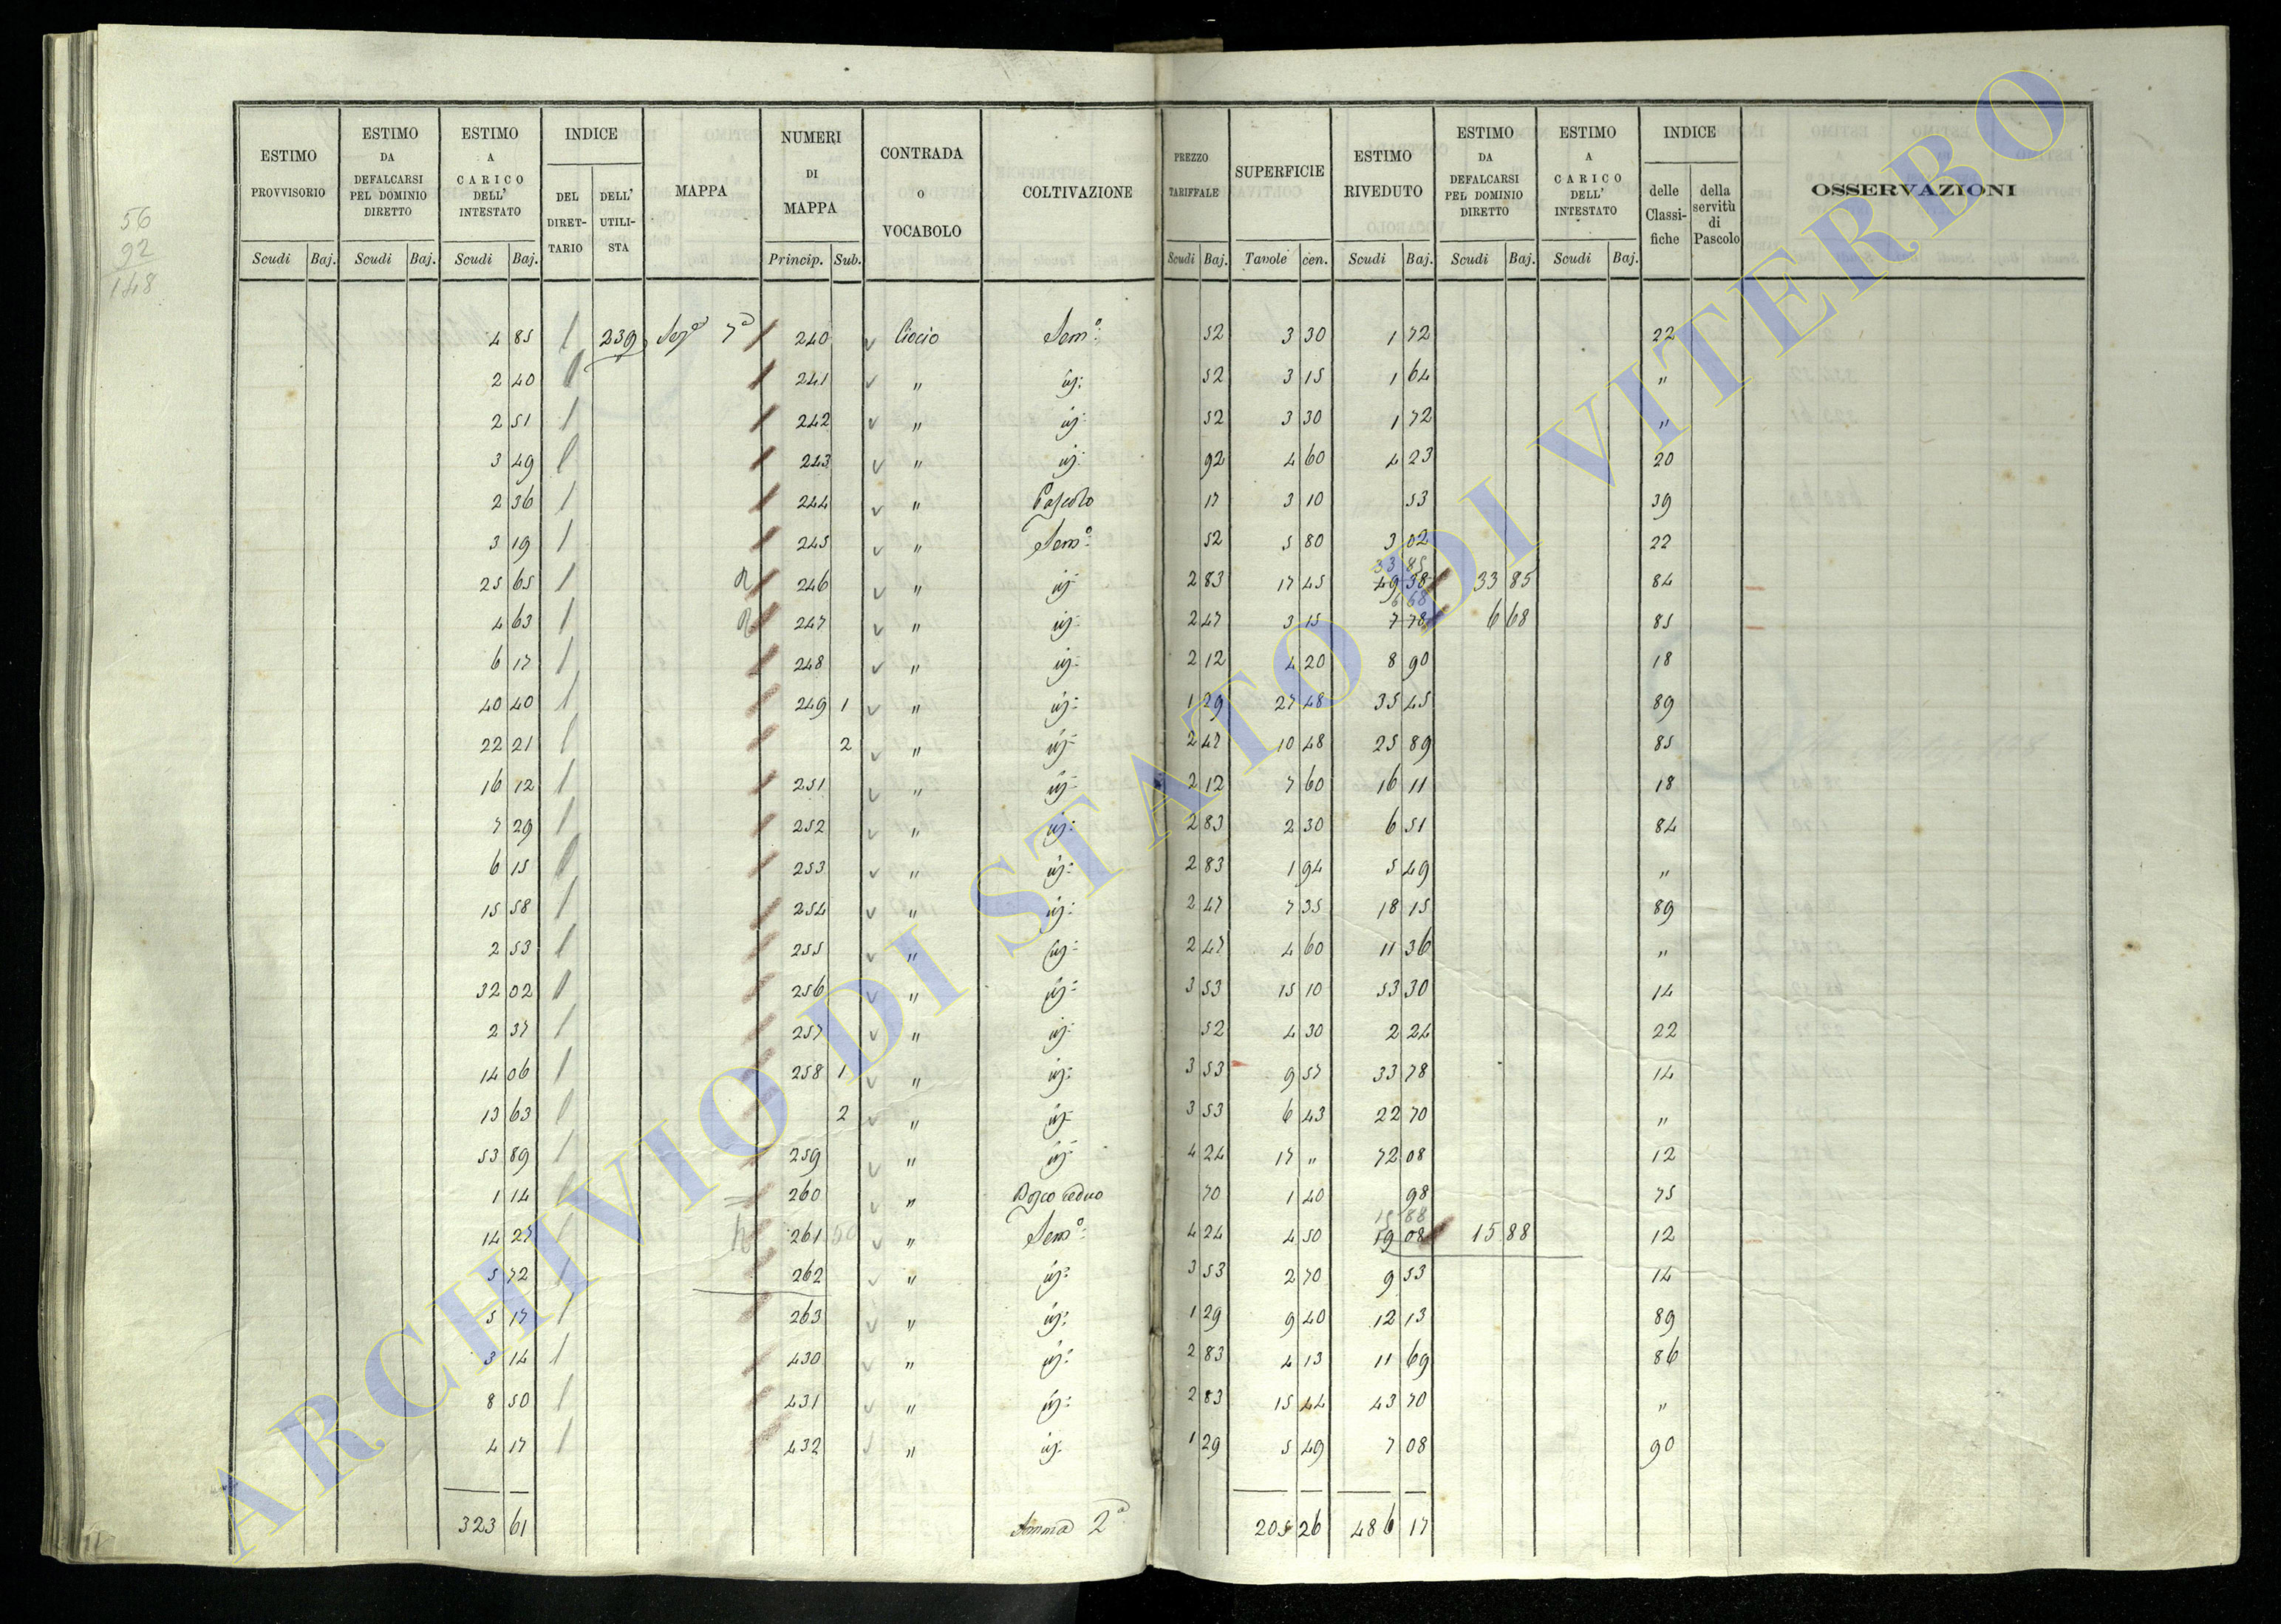 56
92
148
ESTIMO PROVVISORIO
ESTIMO DA DEFALCARSI PEL DOMINIO DIRETTO
ESTIMO A CARICO DELL' INTESTATO
INDICE
DEL DIRET- TARIO
DELL' UTILI- STA
MAPPA
NUMERI DI MAPPA
CONTRADA o VOCABOLO
COLTIVAZIONE
PREZZO TARIFFALE
SUPERFICIE
ESTIMO RIVEDUTO
ESTIMO DA DEFALCARSI PEL DOMINIO DIRETTO
ESTIMO A CARICO DELL' INTESTATO
INDICE
delle Classi- fiche
della servitù di Pascolo
OSSERVAZIONI
Scudi Baj. Scudi Baj. Scudi Baj. Princip. Sub. Scudi Baj. Tavole cen. Scudi Baj. Scudi Baj. Scudi Baj.
4 85 239 Sez.e 7a 240 Ciocio Sem.o 52 3 30 1 72 22
2 40 241 " id: 52 3 15 1 64 "
2 51 242 " id: 52 3 30 1 72 "
3 49 243 " id: 92 4 60 4 23 20
2 36 244 " Pascolo 17 3 10 53 39
3 19 245 " Sem.o 52 5 80 3 02 22
33 85
25 65 246 " id: 2 83 17 45 49 38 33 85 84
6 68
4 63 247 " id: 2 47 3 15 7 78 6 68 85
6 17 248 " id: 2 12 4 20 8 90 18
40 40 249 1 " id: 1 29 27 48 35 45 89
22 21 2 " id: 2 47 10 48 25 89 85
16 12 251 " id: 2 12 7 60 16 11 18
7 29 252 " id: 2 83 2 30 6 51 84
6 15 253 " id: 2 83 1 94 5 49 "
15 58 254 " id: 2 47 7 35 18 15 89
2 53 255 " id: 2 47 4 60 11 36 "
32 02 256 " id: 3 53 15 10 53 30 14
2 37 257 " id: 52 4 30 2 24 22
14 06 258 1 " id: 3 53 9 57 33 78 14
13 63 2 " id: 3 53 6 43 22 70 "
53 89 259 " id: 4 24 17 " 72 08 12
1 14 260 " Bosco ceduo 70 1 40 98 75
15 88
14 27 261 50 " Sem.o 4 24 4 50 19 08 15 88 12
5 72 262 " id: 3 53 2 70 9 53 14
5 17 263 " id: 1 29 9 40 12 13 89
3 14 430 " id: 2 83 4 13 11 69 86
8 50 431 " id: 2 83 15 44 43 70 "
4 17 432 " id: 1 29 5 49 7 08 90
323 61 Somma 2a 205 26 486 17
ARCHIVIO DI STATO DI VITERBO